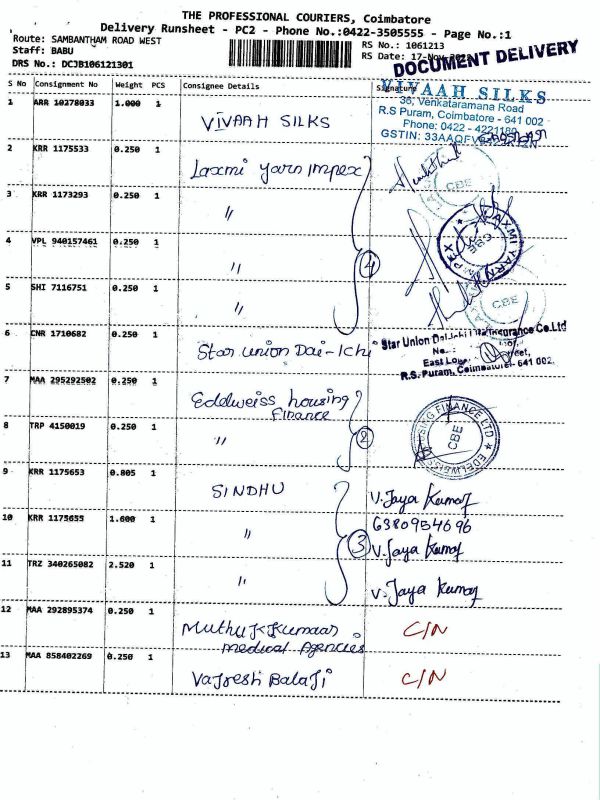 THE PROFESSIONAL COURIERS, Coimbatore
Delivery Runsheet - PC2 - Phone No.:0422-3505555 - Page No.:1
Route: SAMBANTHAM ROAD WEST
RS No.: 1061213
Staff: BABU
RS Date: 17-Nov-
DOCUMENT DELIVERY
DRS No.: DCJB106121301
S No Consignment No Weight PCS Consignee Details Signature
VIVAAH SILKS
36, Venkataramana Road
R.S Puram, Coimbatore - 641 002
Phone: 0422 - 4221180
GSTIN: 33AAQFV
1 ARR 10278033 1.000 1 VIVAAH SILKS
2 KRR 1175533 0.250 1 Laxmi yarn impex
CBE
3 KRR 1173293 0.250 1 "
LAXMI YARN IMPEX
CBE
4 VPL 940157461 0.250 1 " 4
5 SHI 7116751 0.250 1 "
CBE
6 CNR 1710682 0.250 1 Star union Dai-Ichi
Star Union Dai-ichi Life Insurance Co.Ltd
No.:
East Street,
R.S. Puram, Coimbatore - 641 002.
7 MAA 295292502 0.250 1 Eddweiss housing
Finance
8 TRP 4150019 0.250 1 " 2
HOUSING FINANCE LTD ★ EDELWEISS
CBE
9 KRR 1175653 0.805 1 SINDHU V. Jaya Kumar
6380954696
10 KRR 1175655 1.600 1 " 3 V. Jaya Kumar
11 TRZ 340265082 2.520 1 " V. Jaya Kumar
12 MAA 292895374 0.250 1 Muthu K Kumaar C/N
medical Agencies
13 MAA 858402269 0.250 1 Vajresh Balaji C/N